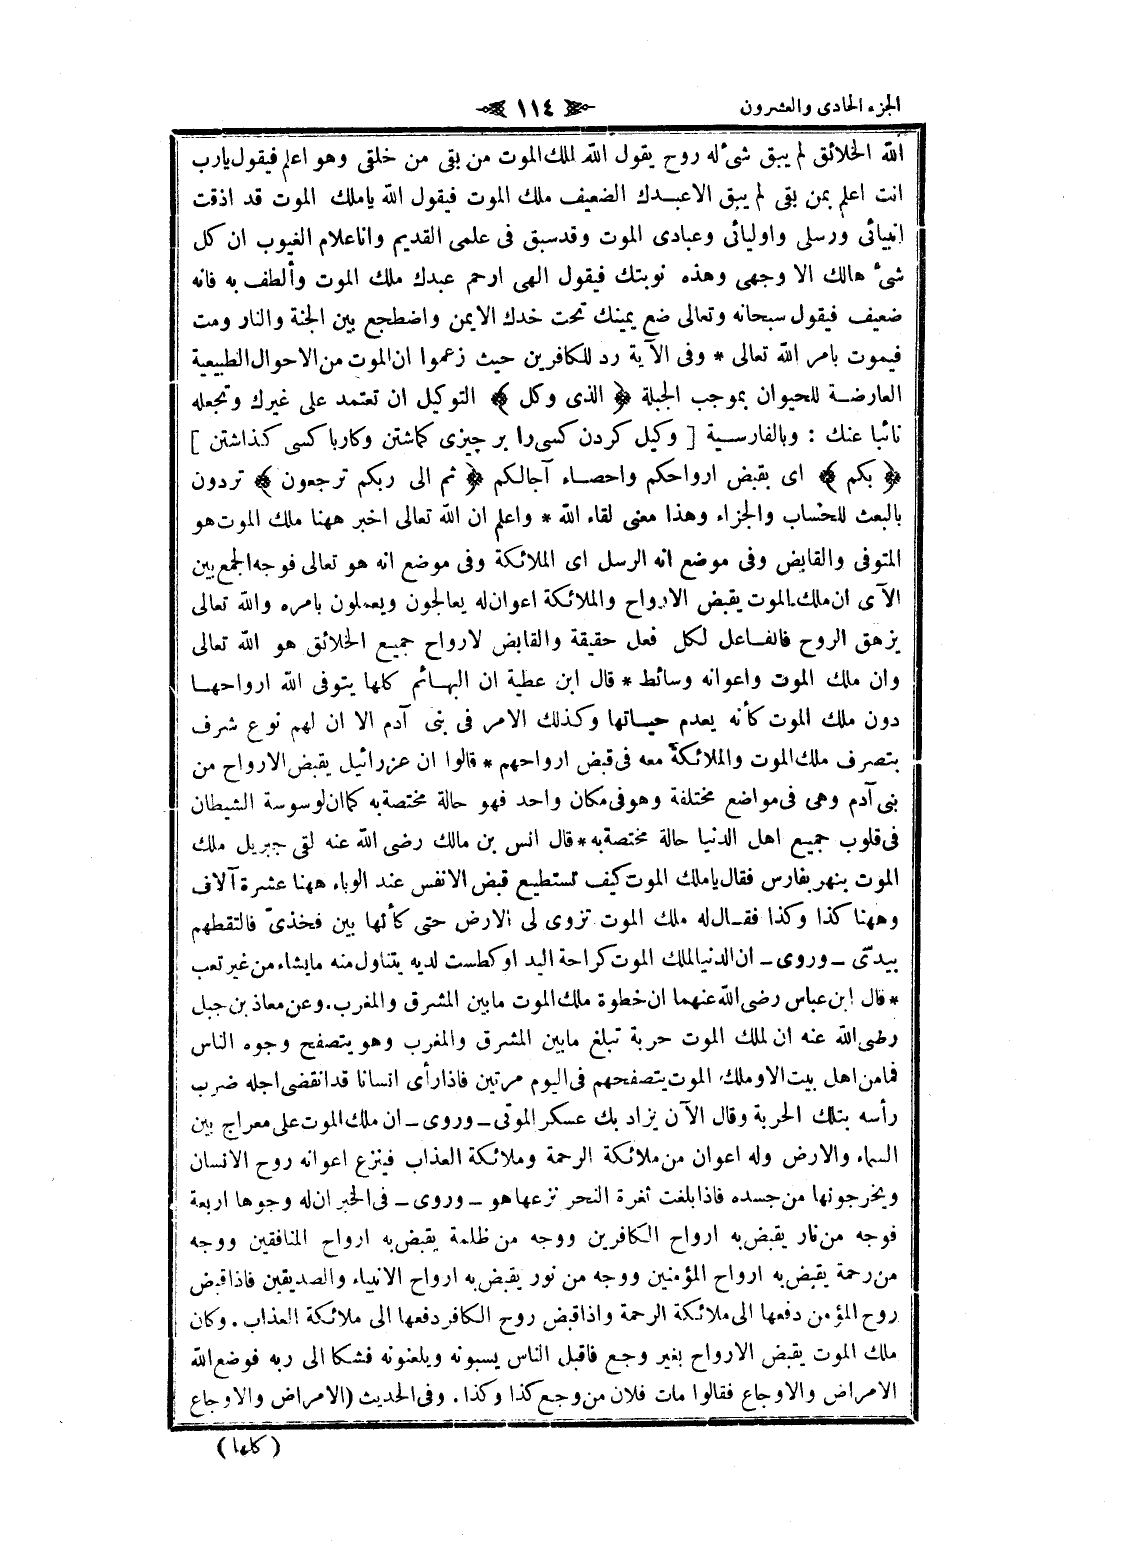 الجزء الحادى والعشرون
١١٤
الله الخلائق لم يبق شىء له روح يقول الله لملك الموت من بقى من خلقى وهو اعلم فيقول يارب
انت اعلم بمن بقى لم يبق الا عبدك الضعيف ملك الموت فيقول الله ياملك الموت قد اذقت
انبيائى ورسلى واوليائى وعبادى الموت وقدسبق فى علمى القديم وانا علام الغيوب ان كل
شىء هالك الا وجهى وهذه نوبتك فيقول الهى ارحم عبدك ملك الموت وألطف به فانه
ضعيف فيقول سبحانه وتعالى ضع يمينك تحت خدك الايمن واضطجع بين الجنة والنار ومت
فيموت بامر الله تعالى * وفى الآية رد للكافرين حيث زعموا ان الموت من الاحوال الطبيعية
العارضة للحيوان بموجب الجبلة ﴿ الذى وكل ﴾ التوكيل ان تعتمد على غيرك وتجعله
نائبا عنك : وبالفارسية [ وكيل كردن كسى را بر چيزى كماشتن وكاربا كسى كذاشتن ]
﴿ بكم ﴾ اى بقبض ارواحكم واحصاء آجالكم ﴿ ثم الى ربكم ترجعون ﴾ تردون
بالبعث للحساب والجزاء وهذا معنى لقاء الله * واعلم ان الله تعالى اخبر ههنا ملك الموت هو
المتوفى والقابض وفى موضع انه الرسل اى الملائكة وفى موضع انه هو تعالى فوجه الجمع بين
الآى ان ملك الموت يقبض الارواح والملائكة اعوان له يعالجون ويعملون بامره والله تعالى
يزهق الروح فالفاعل لكل فعل حقيقة والقابض لارواح جميع الخلائق هو الله تعالى
وان ملك الموت واعوانه وسائط * قال ابن عطية ان البهائم كلها يتوفى الله ارواحها
دون ملك الموت كأنه يعدم حياتها وكذلك الامر فى بنى آدم الا ان لهم نوع شرف
بتصرف ملك الموت والملائكة معه فى قبض ارواحهم * قالوا ان عزرائيل يقبض الارواح من
بنى آدم وهى فى مواضع مختلفة وهو فى مكان واحد فهو حالة مختصة به كما ان لوسوسة الشيطان
فى قلوب جميع اهل الدنيا حالة مختصة به * قال انس بن مالك رضى الله عنه لقى جبريل ملك
الموت بنهر بفارس فقال ياملك الموت كيف تستطيع قبض الانفس عند الوباء ههنا عشرة آلاف
وههنا كذا وكذا فقال له ملك الموت تزوى لى الارض حتى كأنها بين فخذىّ فالتقطهم
بيدىّ ـ وروى ـ ان الدنيا لملك الموت كراحة اليد او كطست لديه يتناول منه مايشاء من غير تعب
* قال ابن عباس رضى الله عنهما ان خطوة ملك الموت مابين المشرق والمغرب . وعن معاذ بن جبل
رضى الله عنه ان لملك الموت حربة تبلغ مابين المشرق والمغرب وهو يتصفح وجوه الناس
فما من اهل بيت الا وملك الموت يتصفحهم فى اليوم مرتين فاذا رأى انسانا قد انقضى اجله ضرب
رأسه بتلك الحربة وقال الآن يزاد بك عسكر الموتى ـ وروى ـ ان ملك الموت على معراج بين
السماء والارض وله اعوان من ملائكة الرحمة وملائكة العذاب فينزع اعوانه روح الانسان
ويخرجونها من جسده فاذا بلغت ثغرة النحر نزعها هو ـ وروى ـ فى الخبر ان له وجوها اربعة
فوجه من نار يقبض به ارواح الكافرين ووجه من ظلمة يقبض به ارواح المنافقين ووجه
من رحمة يقبض به ارواح المؤمنين ووجه من نور يقبض به ارواح الانبياء والصديقين فاذا قبض
روح المؤمن دفعها الى ملائكة الرحمة واذا قبض روح الكافر دفعها الى ملائكة العذاب . وكان
ملك الموت يقبض الارواح بغير وجع فاقبل الناس يسبونه ويلعنونه فشكا الى ربه فوضع الله
الامراض والاوجاع فقالوا مات فلان من وجع كذا وكذا . وفى الحديث (الامراض والاوجاع
(كلها)